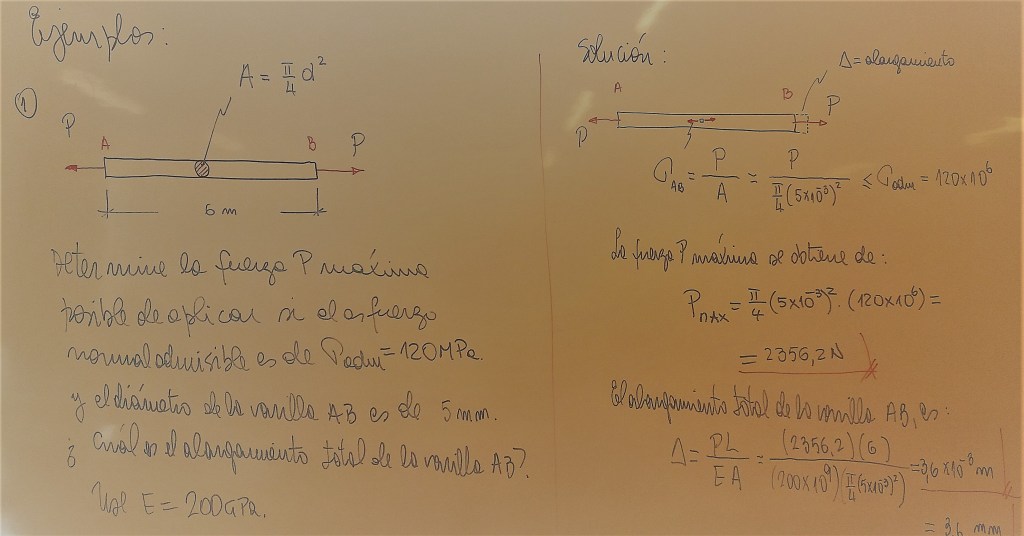 Ejemplos:
1
A = π/4 d²
P A B P
6 m
Determine la fuerza P máxima
posible de aplicar si el esfuerzo
normal admisible es de σadm = 120 MPa.
y el diámetro de la varilla AB es de 5 mm.
¿ Cuál es el alargamiento total de la varilla AB?
Use E = 200 GPa.
Solución:
Δ = alargamiento
P A B P
σAB = P/A = P/(π/4 (5x10⁻³)²) ≤ σadm = 120x10⁶
La fuerza P máxima se obtiene de:
PMAX = π/4 (5x10⁻³)² · (120x10⁶) =
= 2356,2 N
El alargamiento total de la varilla AB, es:
Δ = PL/EA = (2356,2)(6)/((200x10⁹)(π/4 (5x10⁻³)²)) = 3,6x10⁻³ m
= 3,6 mm